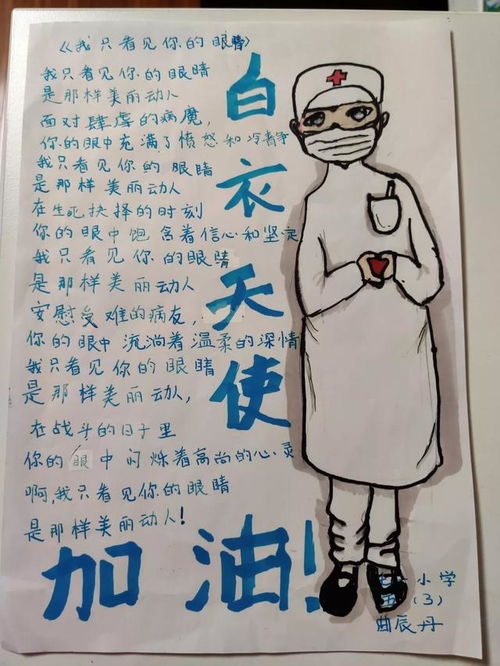 《我只看见你的眼睛》
我只看见你的眼睛
是那样美丽动人
面对肆虐的病魔,
你的眼中充满了愤怒和冷静
我只看见你的眼睛
是那样美丽动人
在生死抉择的时刻
你的眼中饱含着信心和坚定
我只看见你的眼睛
是那样美丽动人
安慰受难的病友,
你的眼中流淌着温柔的深情
我只看见你的眼睛
是那样美丽动人,
在战斗的日子里
你的眼中闪烁着高尚的心灵
啊,我只看见你的眼睛
是那样美丽动人!
白衣天使
加油!
小学
五(3)
曲辰丹